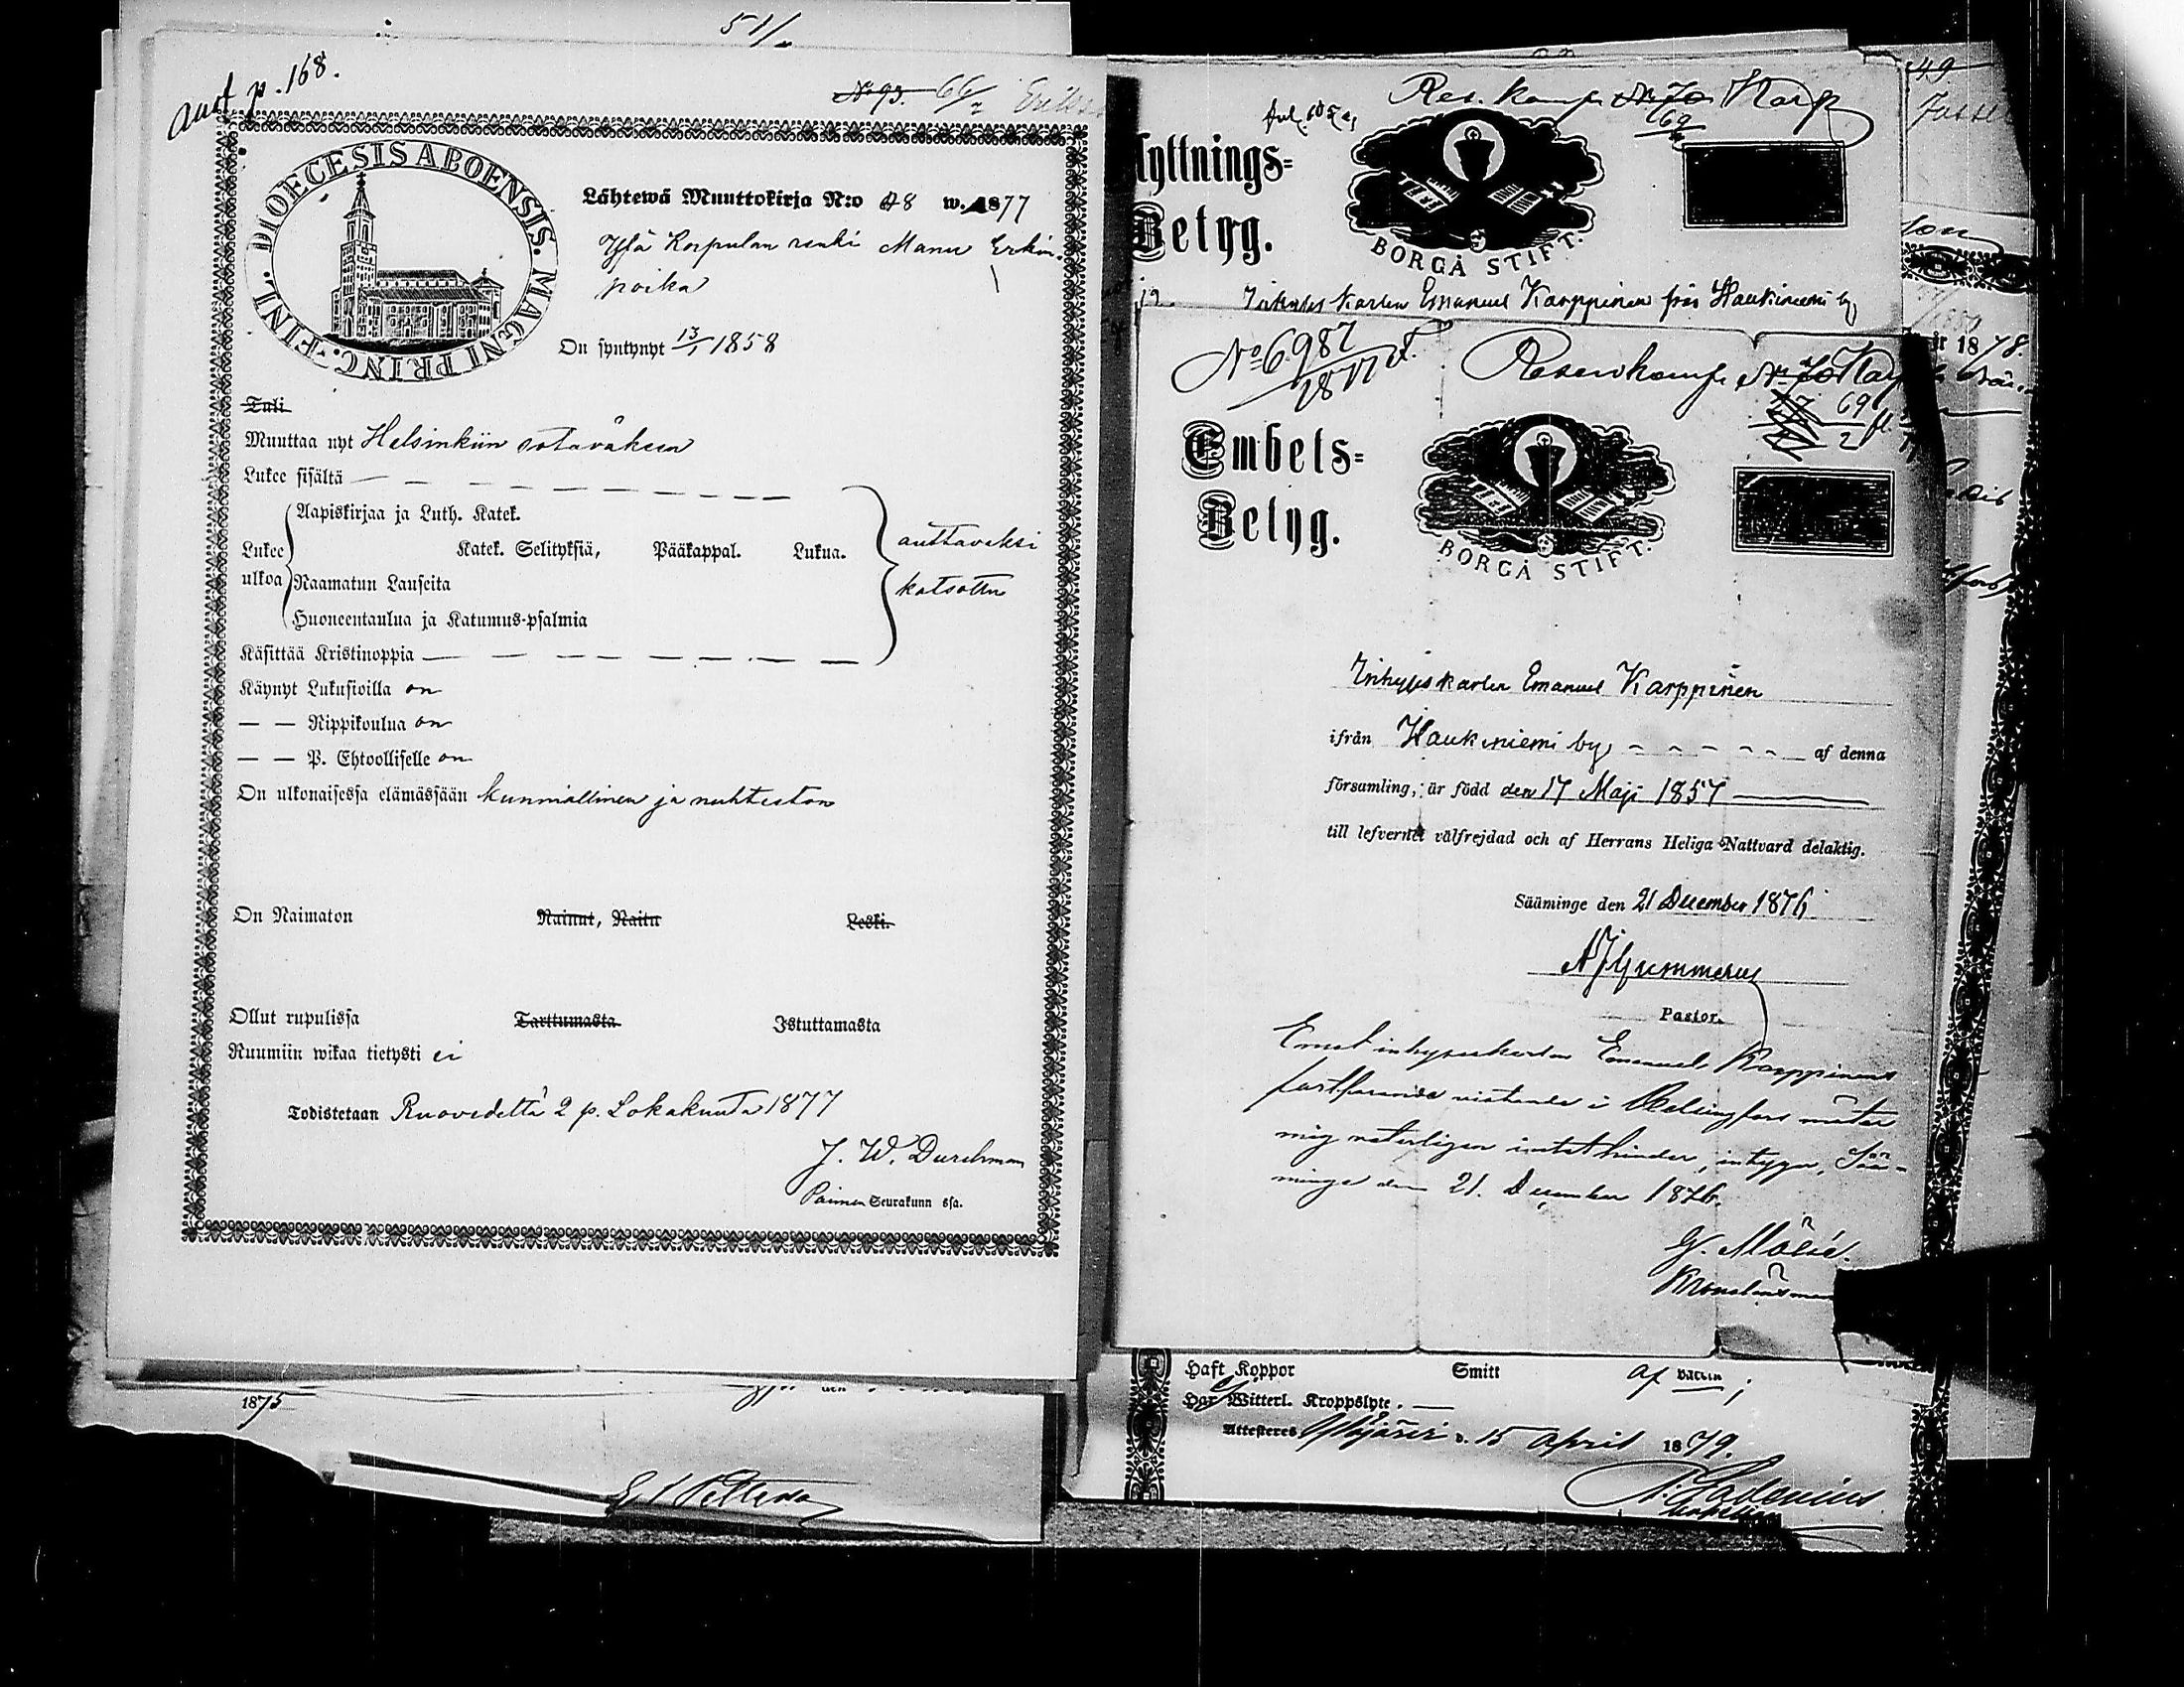 51/
auf p. 168.
No 93. 66/2
DIOECESIS ABOENSIS. MAGNI PRINC. FINL.
Lähtewä Muuttokirja N:o 48 w. 1877
Ylä Korpulan renki Manu Erkin-
poika
On syntynyt 13/1 1858
Tuli
Muuttaa nyt Helsinkiin sotaväkeen
Lukee sisältä
Aapiskirjaa ja Luth. Katek.
Lukee ulkoa
Katek. Selityksiä, Pääkappal. Lukua.
Raamatun Lauseita
Huoneentaulua ja Katumus-psalmia
auttavaksi
katsottu
Käsittää Kristinoppia
Käynyt Lukusioilla on
— — Rippikoulua on
— — P. Ehtoolliselle on
On ulkonaisessa elämässään kunniallinen ja nuhteeton
On Naimaton Nainut, Naitu Leski.
Ollut rupulissa Tarttumasta Istuttamasta
Ruumiin wikaa tietysti ei
Todistetaan Ruovedeltä 2 p. Lokakuuta 1877
J. W. Durchman
Paimen Seurakunn ssa.
1875
Res. komp. No 70 Karp
69
Flyttnings=
Betyg.
BORGÅ STIFT.
Inhyses karlen Emanuel Karppinen från Haukiniemi by
No 6987
1877
Reservkomp. No 70 Karp
69
2
Embets=
Betyg.
BORGÅ STIFT.
Inhyses karlen Emanuel Karppinen
ifrån Haukiniemi by af denna
församling, är född den 17 Maji 1857
till lefvernet välfrejdad och af Herrans Heliga Nattvard delaktig.
Sääminge den 21 December 1876
A J Gummerus
Pastor.
Emot inhyseskarlen Emanuel Karppinens
fortfarande vistande i Helsingfors möter
mig veterligen intet hinder, intygar, Sää-
minge den 21. December 1876.
G. Molis.
Kronolänsman
Haft Koppor Smitt af
Har Witterl. Kroppslyte. —
Attesteres d. 15 April 1879.
49
år 1878.